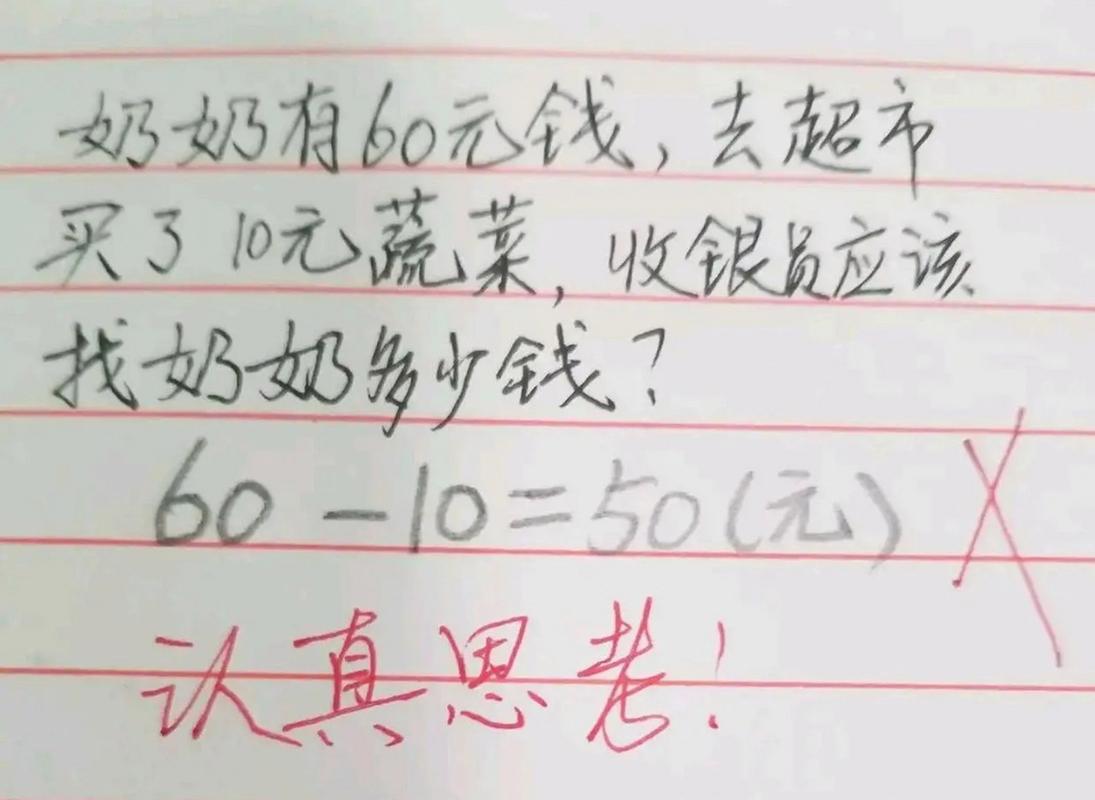 奶奶有60元钱，去超市
买了10元蔬菜，收银员应该
找奶奶多少钱？
60-10=50(元)
认真思考！